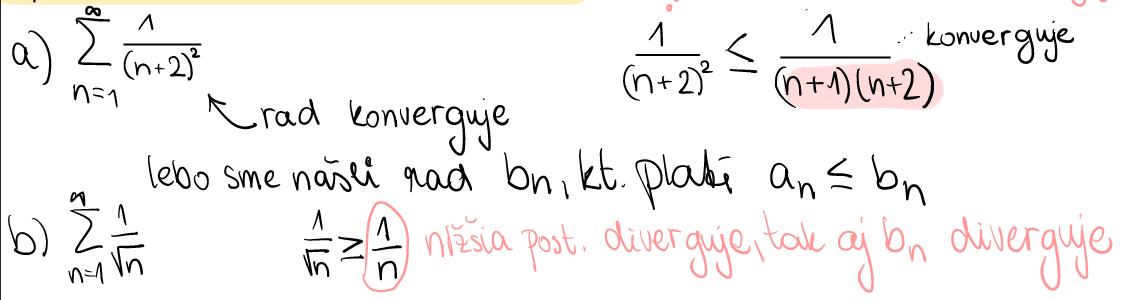 a) ∑_{n=1}^{∞} 1/(n+2)² 1/(n+2)² ≤ 1/((n+1)(n+2)) .. konverguje
rad konverguje
lebo sme našli rad bn, kt. platí an ≤ bn
b) ∑_{n=1}^{∞} 1/√n 1/√n ≥ 1/n nižšia post. diverguje, tak aj bn diverguje